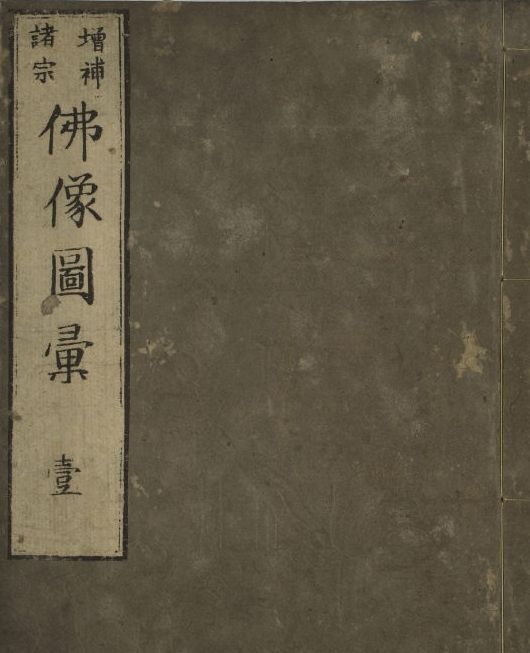 增補
諸宗
佛像圖彙
壹